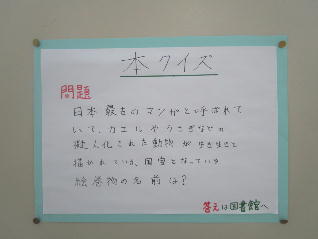 本クイズ
問題
日本最古のマンガと呼ばれて
いて、カエルやうさぎなどの
擬人化された動物が生き生きと
描かれている、国宝となっている
絵巻物の名前は?
答えは図書館へ